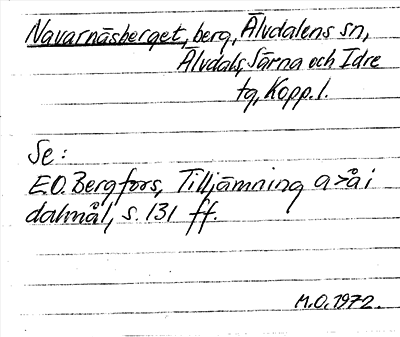 Navarnäsberget, berg, Älvdalens sn,
Älvdals, Särna och Idre
tg, Kopp. l.
Se:
E.O. Bergfors, Tilljämning a>å i
dalmål, s. 131 ff.
M.O. 1972.